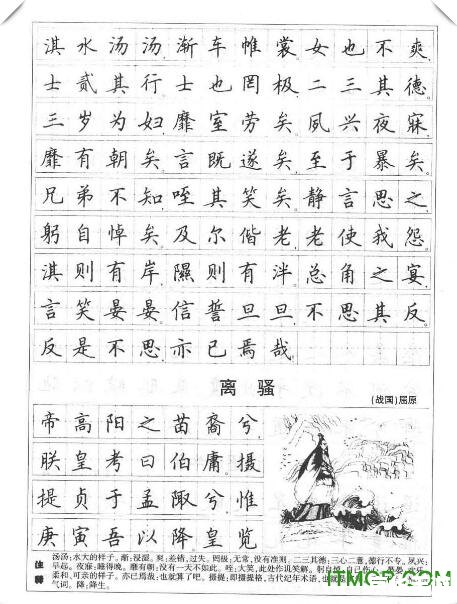 淇水汤汤,渐车帷裳。女也不爽,
士贰其行。士也罔极,二三其德。
三岁为妇,靡室劳矣。夙兴夜寐,
靡有朝矣。言既遂矣,至于暴矣。
兄弟不知,咥其笑矣。静言思之,
躬自悼矣。及尔偕老,老使我怨。
淇则有岸,隰则有泮。总角之宴,
言笑晏晏。信誓旦旦,不思其反。
反是不思,亦已焉哉。
离骚
(战国)屈原
帝高阳之苗裔兮,
朕皇考曰伯庸。摄
提贞于孟陬兮,惟
庚寅吾以降。皇览
注释
汤汤:水大的样子。渐:浸湿。爽:差错,过失。罔极:无常,没有准则。二三其德:三心二意,德行不专。夙兴:
早起。夜寐:睡得晚。靡有朝:没有一天不如此。咥:大笑,此处作讥笑解。躬自悼:自己伤心。
柔和、可亲的样子。亦已焉哉:也就算了吧。摄提:即摄提格,古代纪年术语,也就是
气词。降:降生。